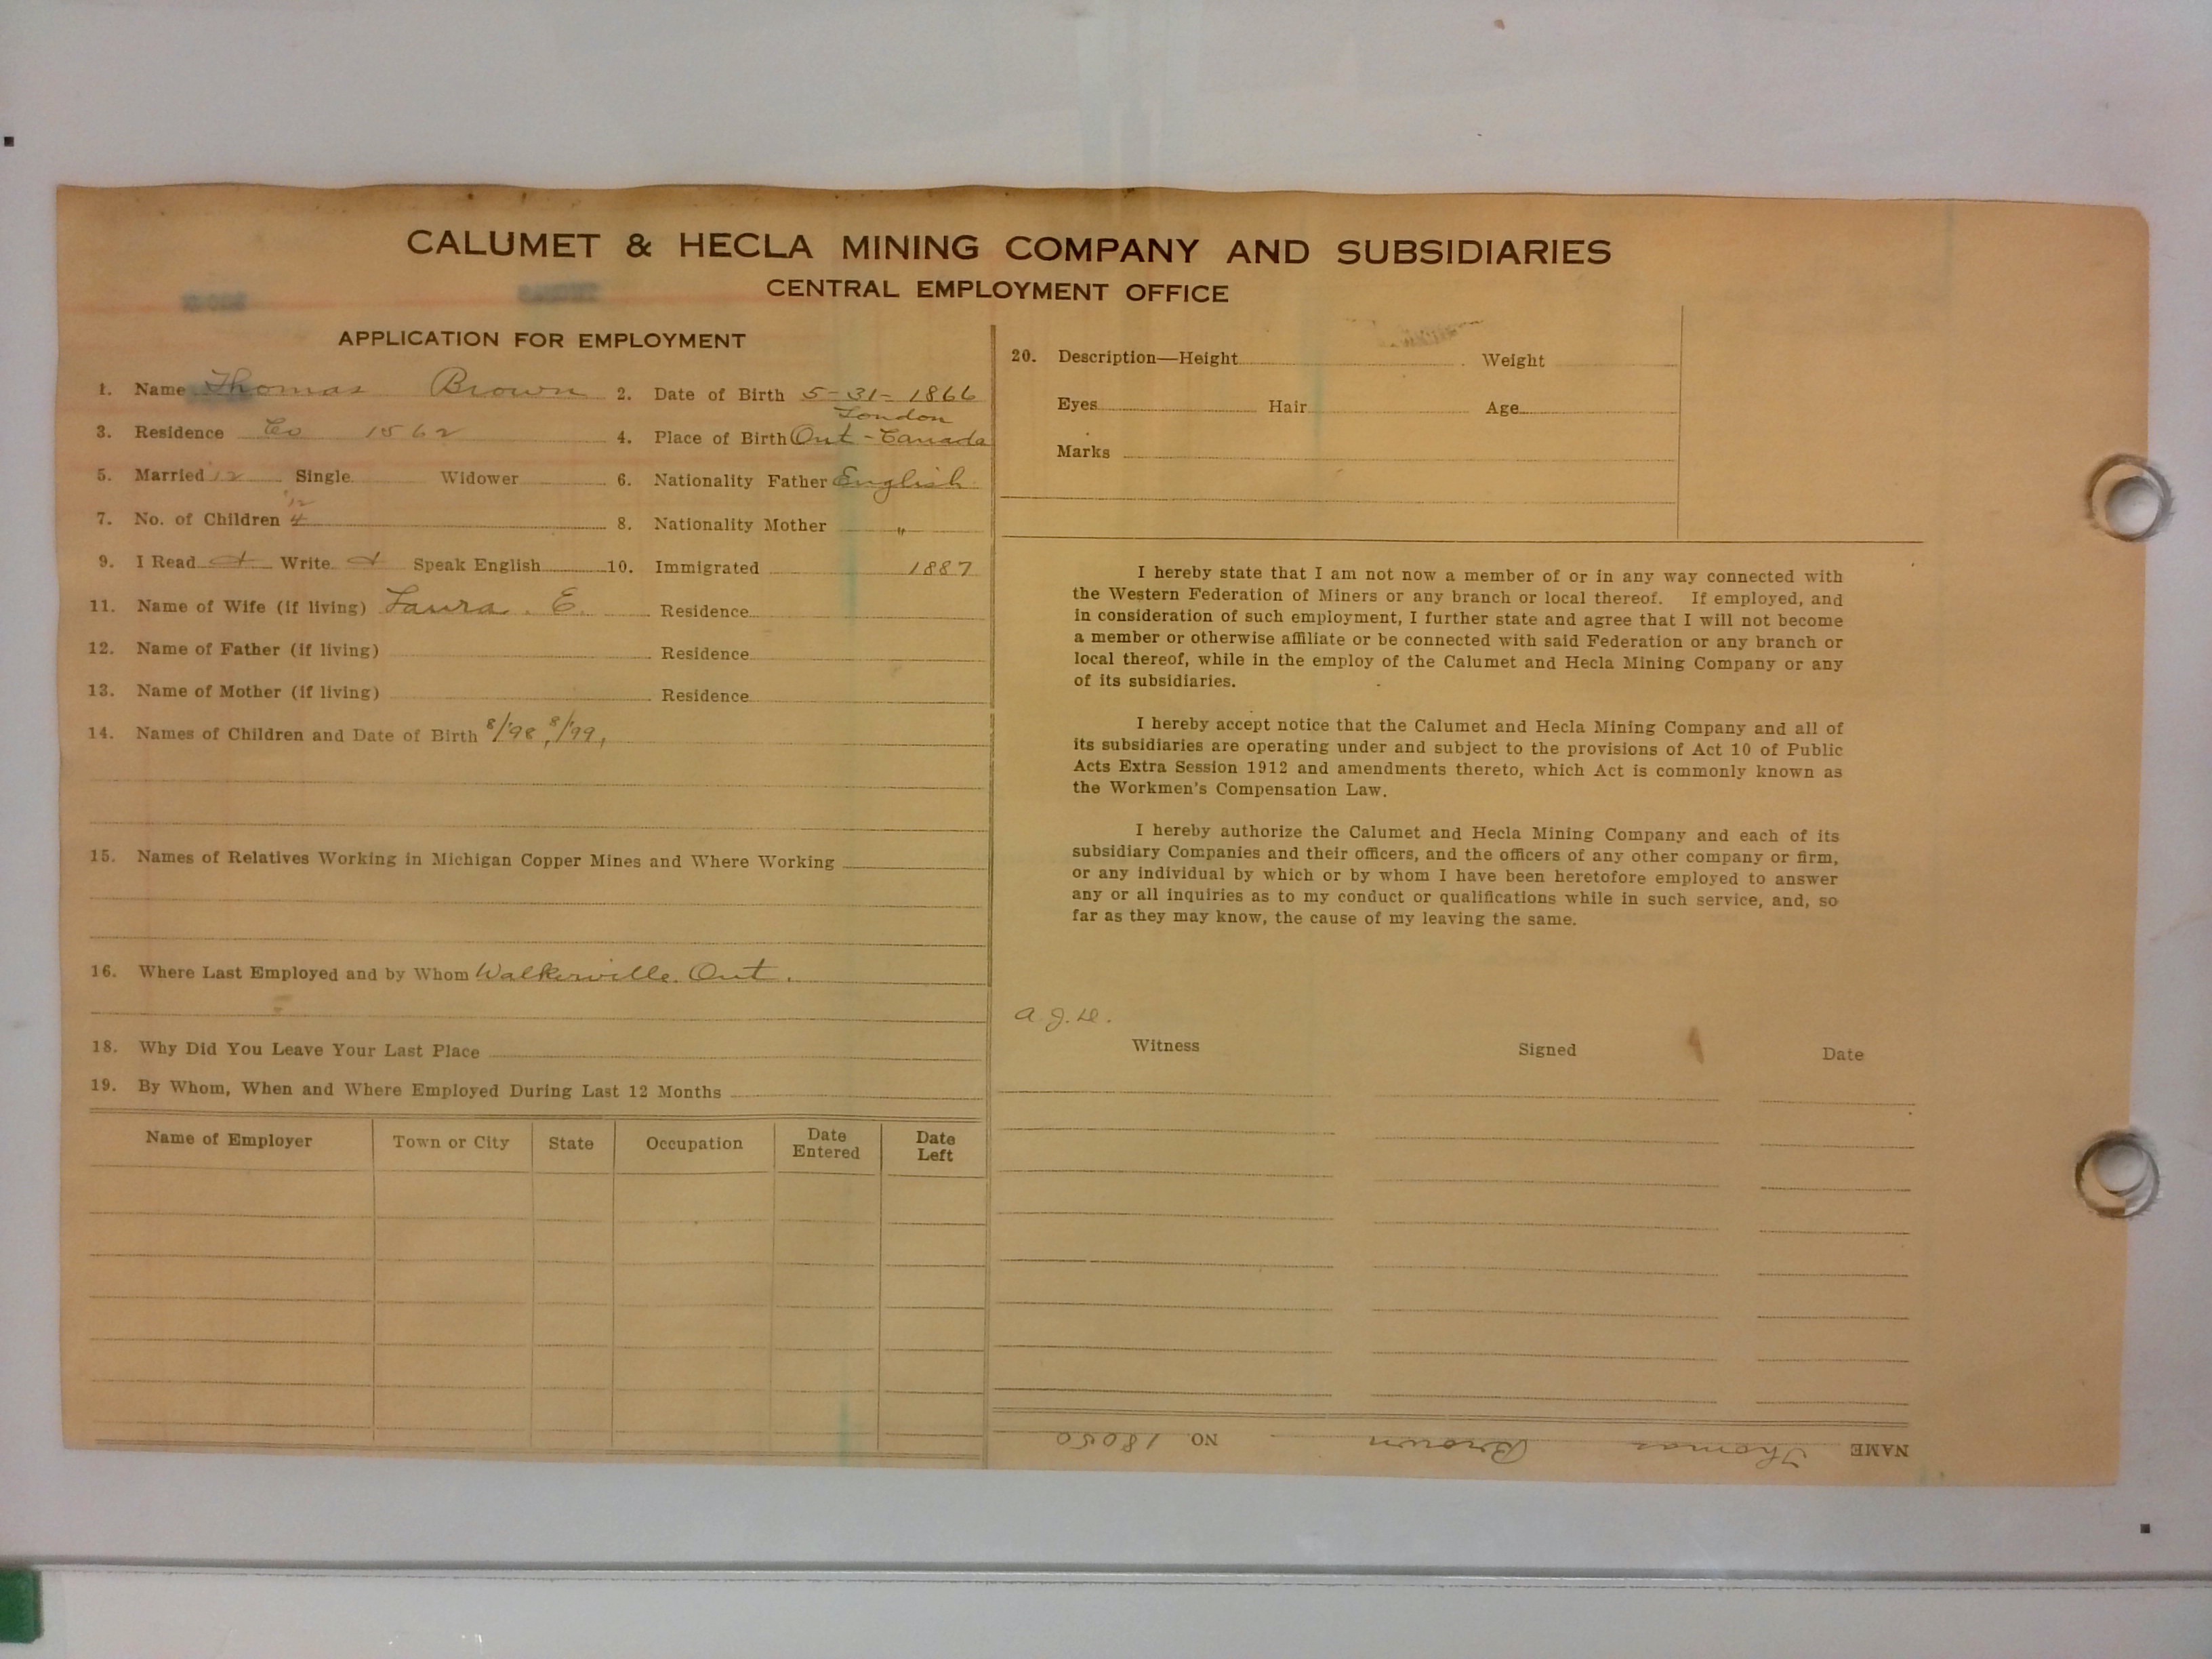 CALUMET & HECLA MINING COMPANY AND SUBSIDIARIES
CENTRAL EMPLOYMENT OFFICE
APPLICATION FOR EMPLOYMENT
1. Name Thomas Brown 2. Date of Birth 5-31-1866
London
3. Residence Co 1562 4. Place of Birth Ont-Canada
5. Married 12 Single Widower 6. Nationality Father English
'12
7. No. of Children 4 8. Nationality Mother "
9. I Read Write Speak English 10. Immigrated 1887
11. Name of Wife (if living) Laura. E. Residence
12. Name of Father (if living) Residence
13. Name of Mother (if living) Residence
14. Names of Children and Date of Birth 8/'98, 8/'99,
15. Names of Relatives Working in Michigan Copper Mines and Where Working
16. Where Last Employed and by Whom Walkerville. Ont.
18. Why Did You Leave Your Last Place
19. By Whom, When and Where Employed During Last 12 Months
Name of Employer Town or City State Occupation Date Entered Date Left
20. Description—Height Weight
Eyes Hair Age
Marks
I hereby state that I am not now a member of or in any way connected with
the Western Federation of Miners or any branch or local thereof. If employed, and
in consideration of such employment, I further state and agree that I will not become
a member or otherwise affiliate or be connected with said Federation or any branch or
local thereof, while in the employ of the Calumet and Hecla Mining Company or any
of its subsidiaries.
I hereby accept notice that the Calumet and Hecla Mining Company and all of
its subsidiaries are operating under and subject to the provisions of Act 10 of Public
Acts Extra Session 1912 and amendments thereto, which Act is commonly known as
the Workmen's Compensation Law.
I hereby authorize the Calumet and Hecla Mining Company and each of its
subsidiary Companies and their officers, and the officers of any other company or firm,
or any individual by which or by whom I have been heretofore employed to answer
any or all inquiries as to my conduct or qualifications while in such service, and, so
far as they may know, the cause of my leaving the same.
Witness Signed Date
NAME Thomas Brown NO. 18050